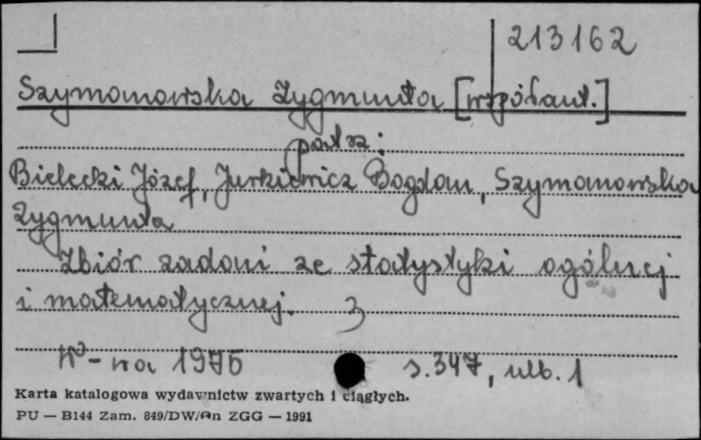 213162
Szymanowska Zygmunta [współaut.]
patrz:
Bielecki Józef, Jurkiewicz Bogdan, Szymanowska
Zygmunta
Zbiór zadań ze statystyki ogólnej
i matematycznej. 3
W-wa 1975 s.347, nlb. 1
Karta katalogowa wydawnictw zwartych i ciągłych.
PU — B144 Zam. 849/DW/An ZGG — 1991